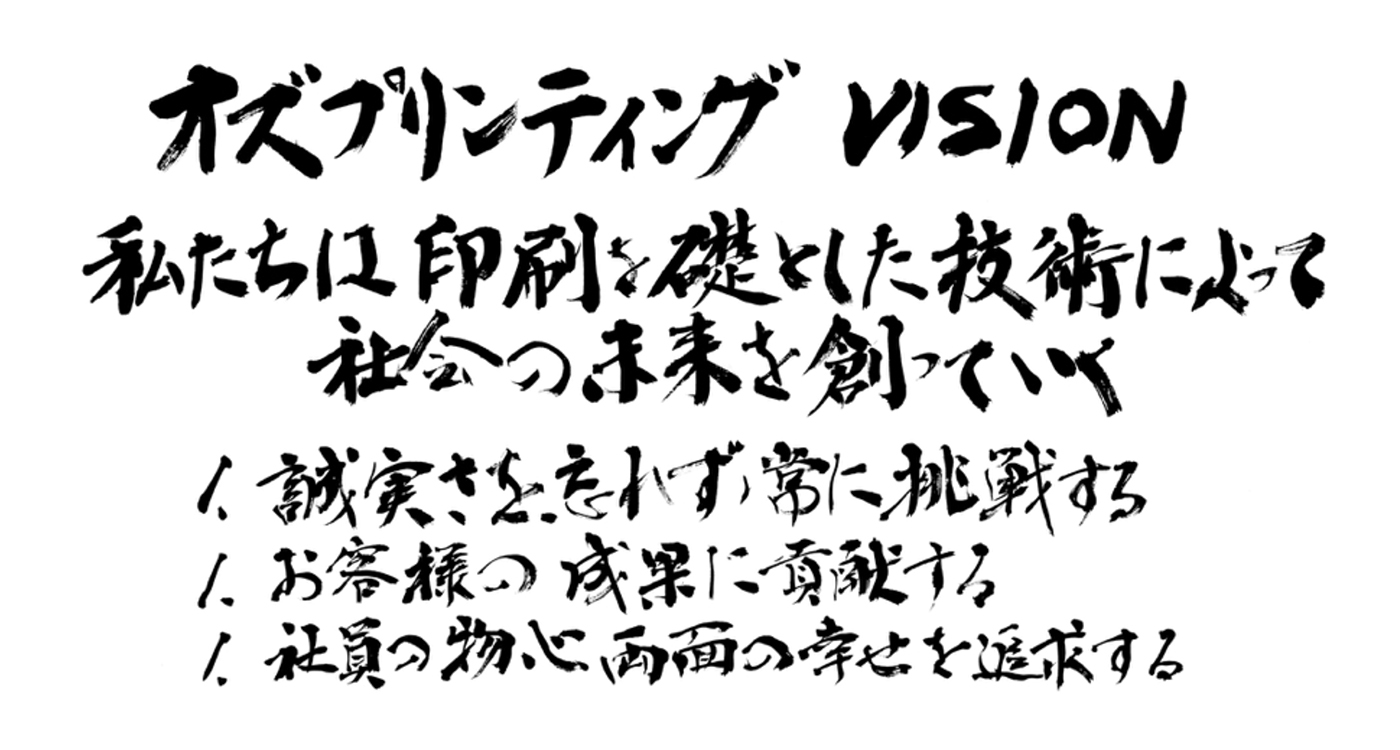 オズプリンティング VISION
私たちは印刷を礎とした技術によって
社会の未来を創っていく
1. 誠実さを忘れず、常に挑戦する
1. お客様の成果に貢献する
1. 社員の物心両面の幸せを追求する